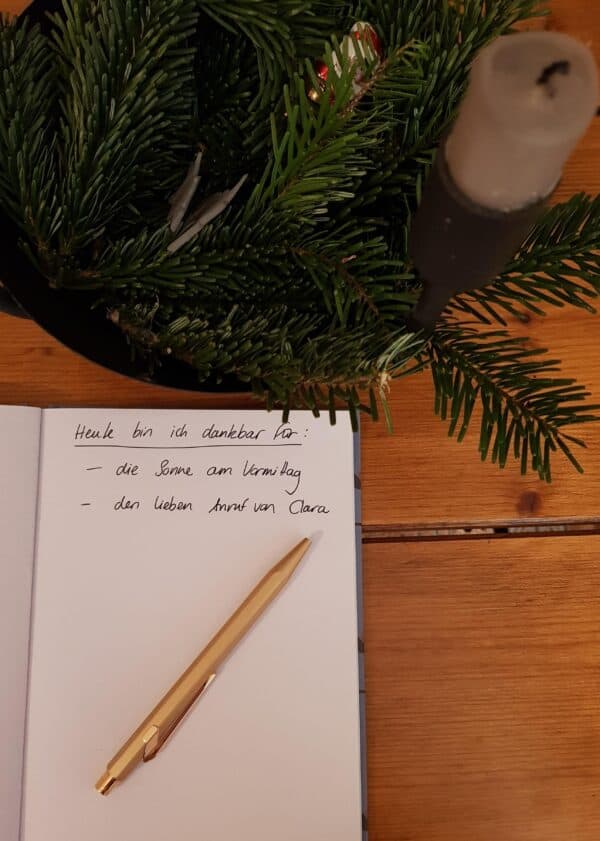 Heute bin ich dankbar für:
– die Sonne am Vormittag
– den lieben Anruf von Clara